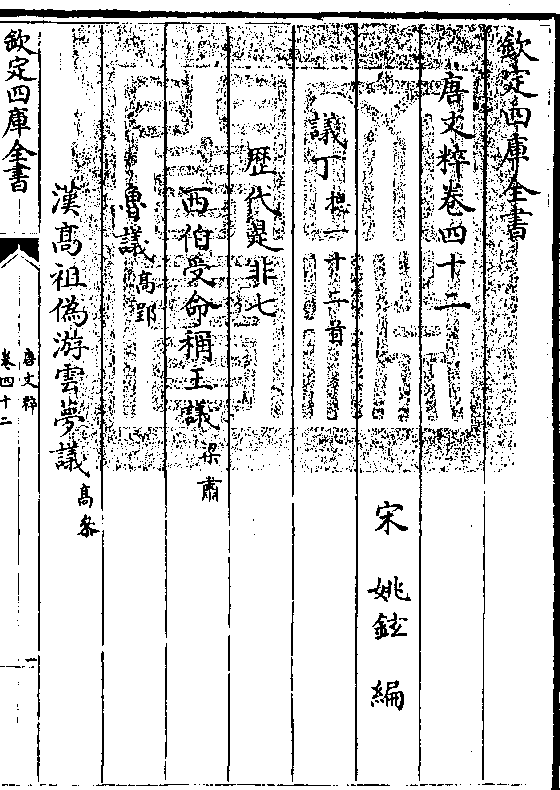 欽定四庫全書
唐文粹卷四十二
宋 姚鉉 編
議丁 總一十二首
歷代是非七
西伯受命稱王議 梁肅
魯議 高郢
漢高祖偽游雲夢議 高參
欽定四庫全書
唐文粹
卷四十二
一